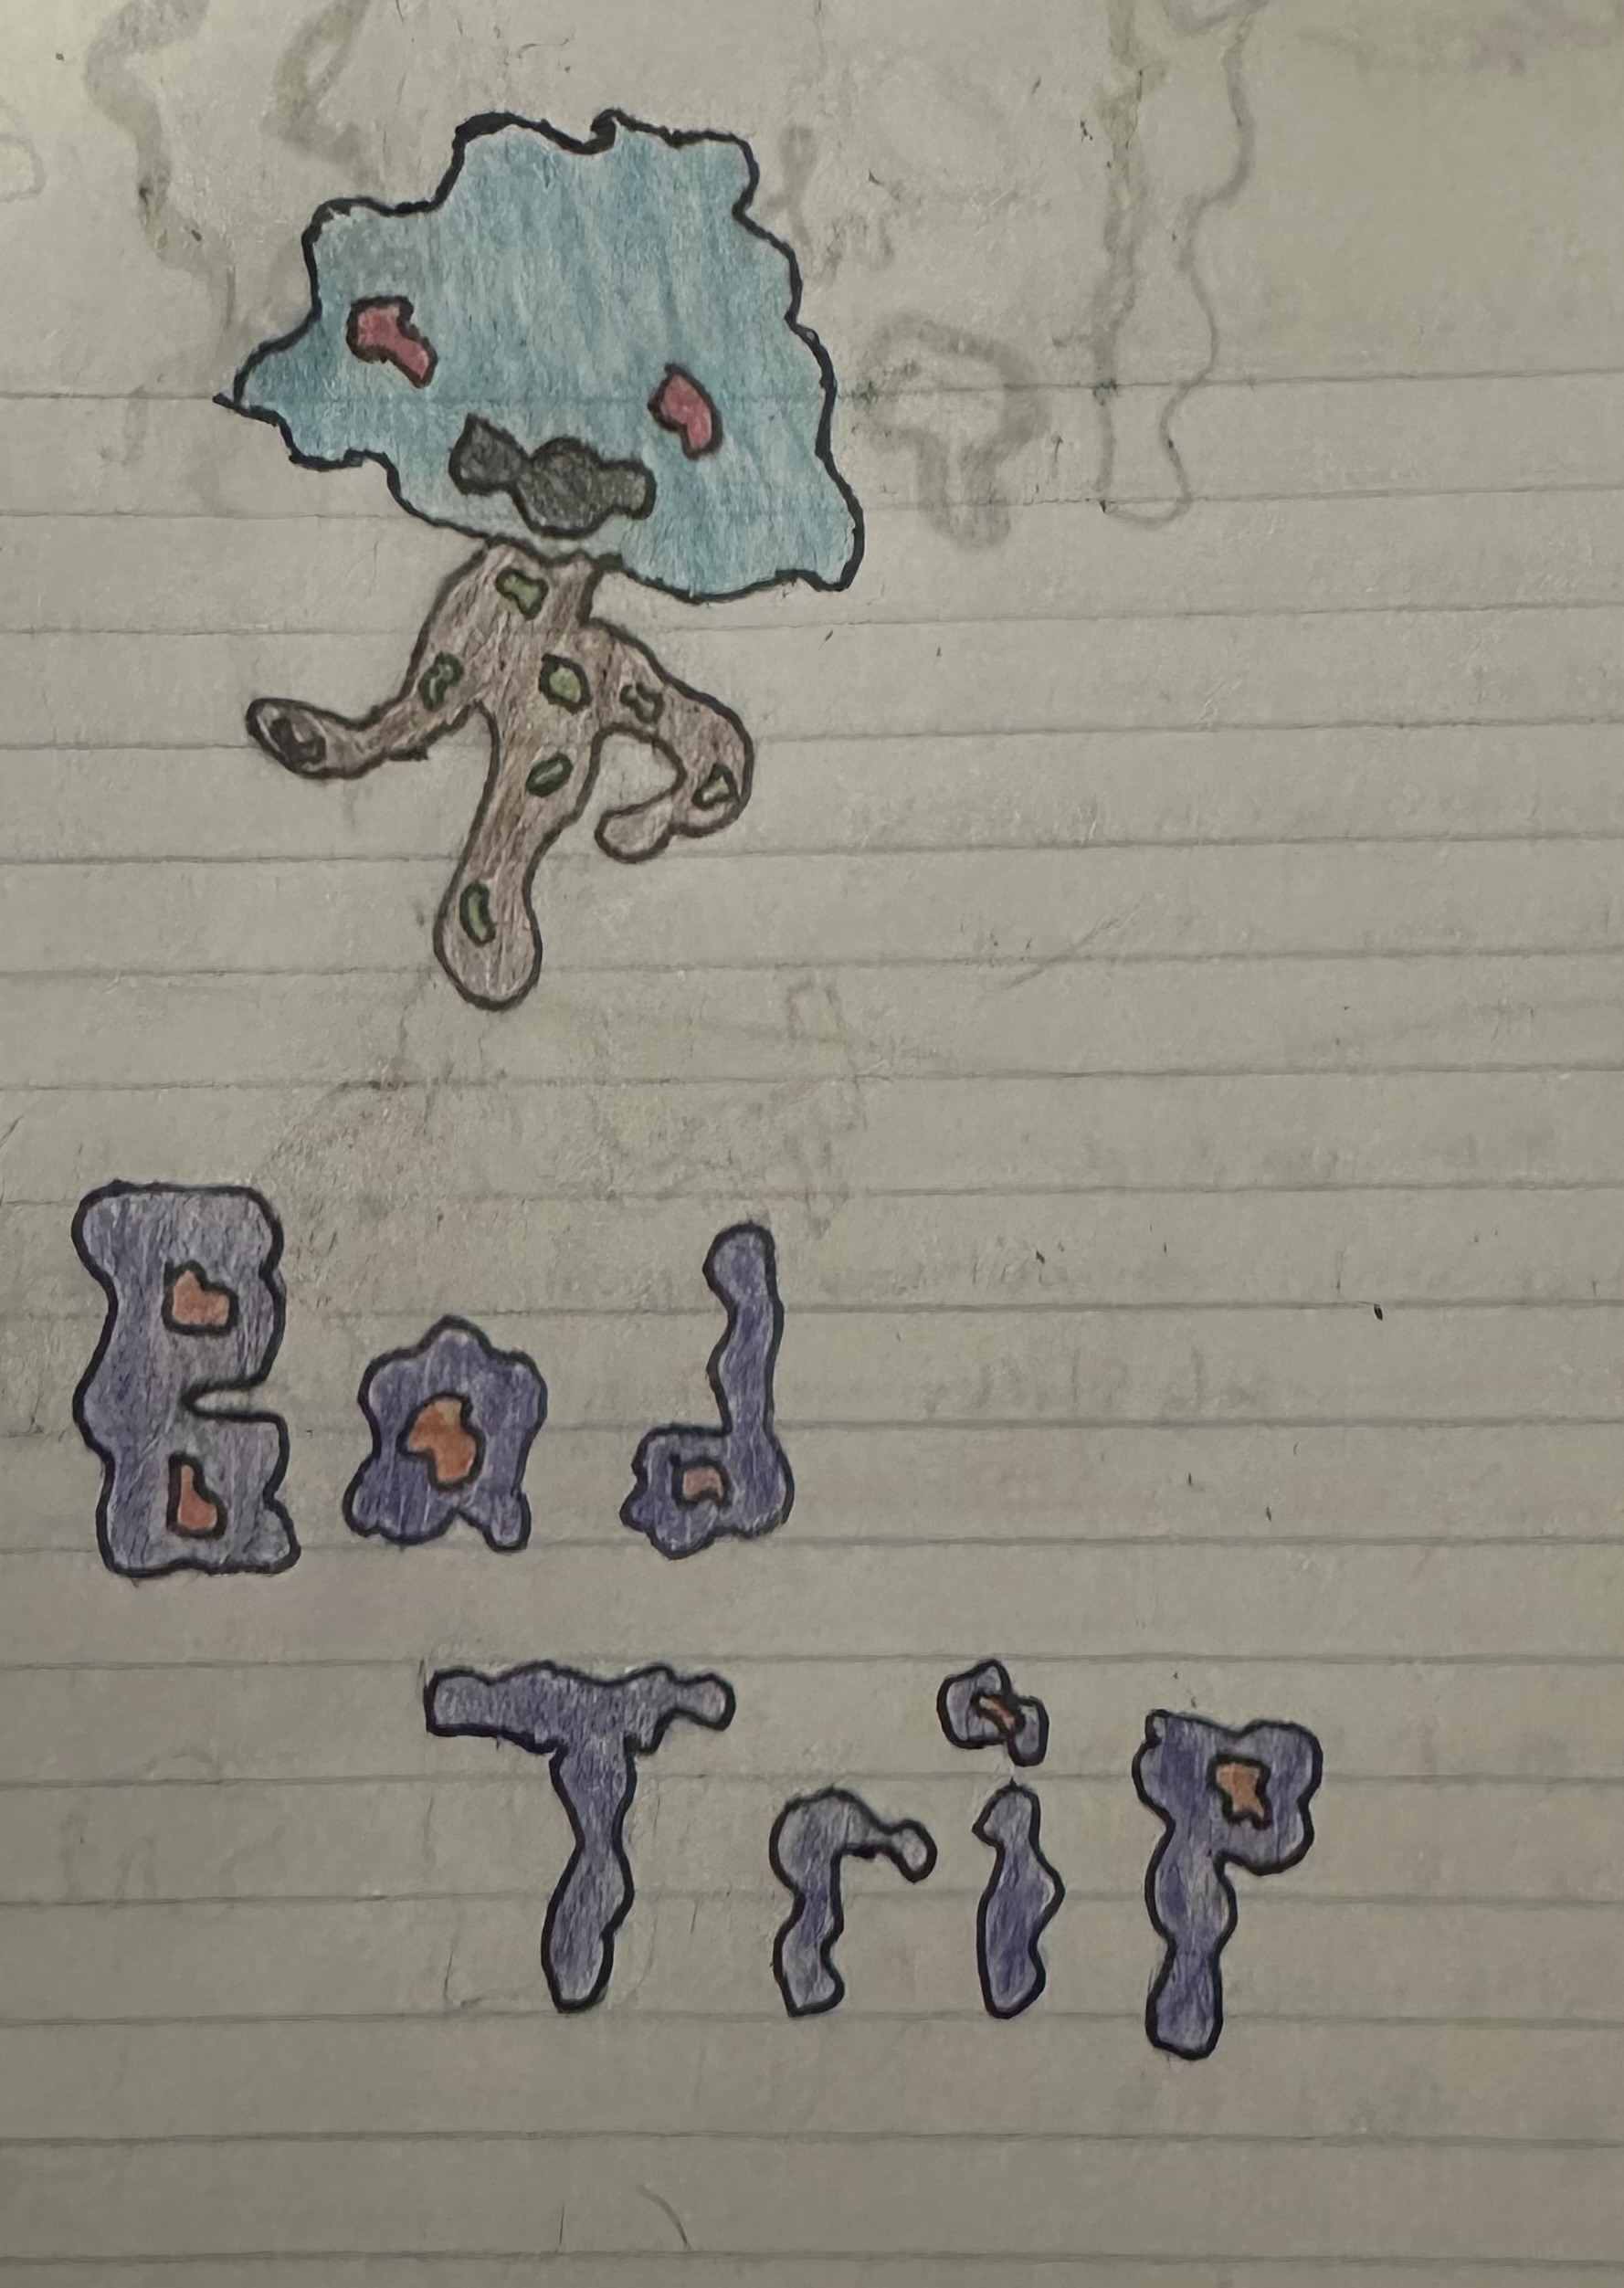 Bad
Trip